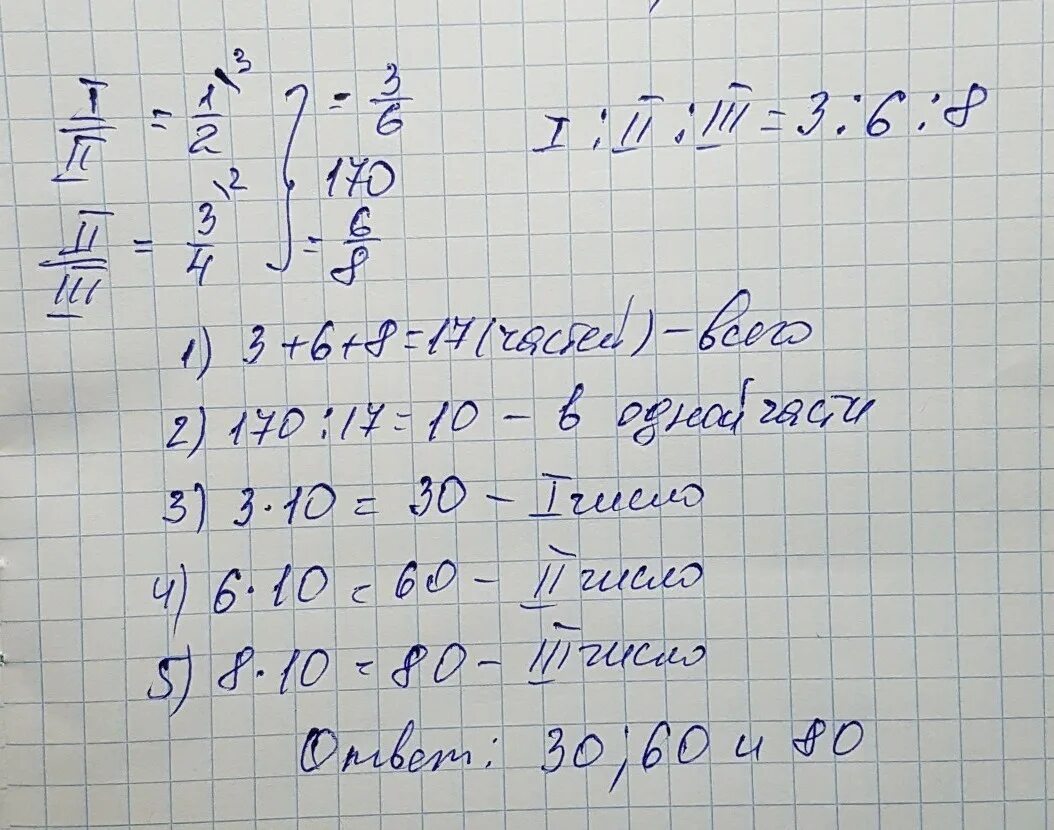 I/II = 1/2 \3 = 3/6
I : II : III = 3 : 6 : 8
170
II/III = 3/4 \2 = 6/8
1) 3+6+8=17(частей) – всего
2) 170:17=10 – в одной части
3) 3·10 = 30 – I число
4) 6·10 = 60 – II число
5) 8·10 = 80 – III число
Ответ: 30; 60 и 80